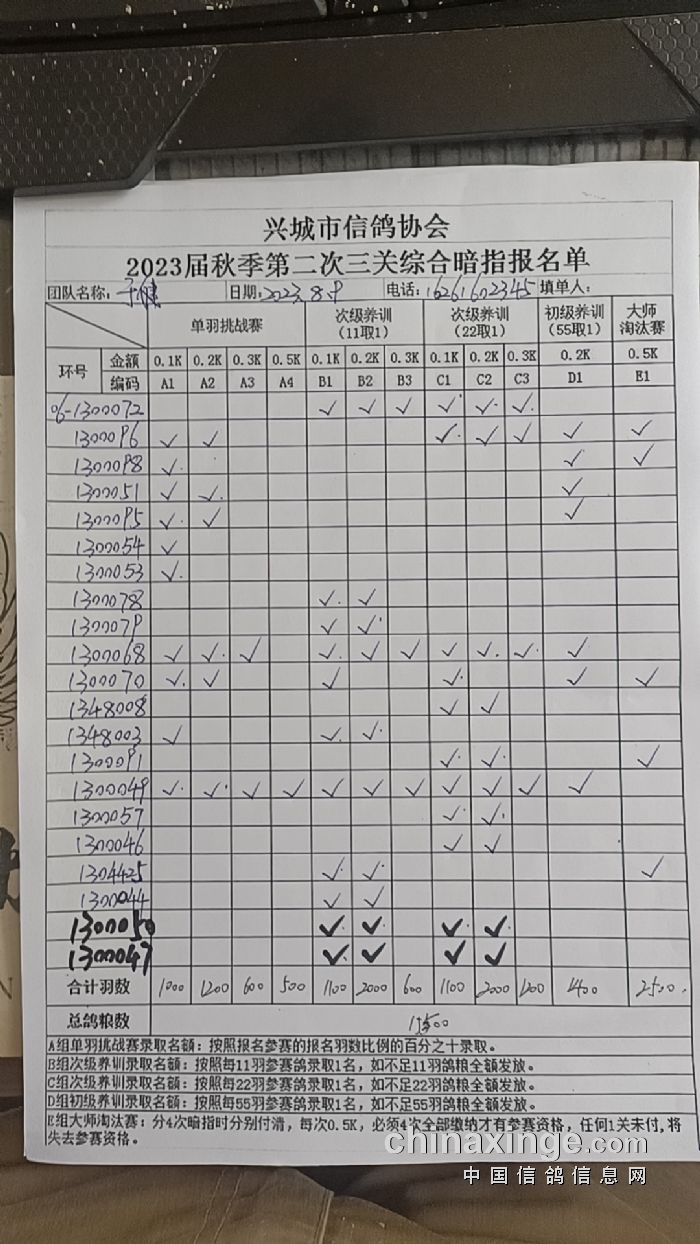 兴城市信鸽协会
2023届秋季第二次三关综合暗指报名单
团队名称： 日期：2023.8.9 电话：16261602345 填单人：
单羽挑战赛 次级养训（11取1） 次级养训（22取1） 初级养训（55取1） 大师淘汰赛
环号 金额 0.1K 0.2K 0.3K 0.5K 0.1K 0.2K 0.3K 0.1K 0.2K 0.3K 0.2K 0.5K
编码 A1 A2 A3 A4 B1 B2 B3 C1 C2 C3 D1 E1
06-1300072 ✓ ✓ ✓ ✓ ✓ ✓
1300096 ✓ ✓ ✓ ✓ ✓ ✓ ✓
1300098 ✓ ✓ ✓
1300051 ✓ ✓ ✓
1300095 ✓ ✓ ✓
1300054 ✓
1300053 ✓
1300078 ✓ ✓
1300079 ✓ ✓
1300068 ✓ ✓ ✓ ✓ ✓ ✓ ✓ ✓ ✓ ✓
1300070 ✓ ✓ ✓ ✓ ✓ ✓
1348008 ✓ ✓
1348003 ✓ ✓ ✓
1300091 ✓ ✓ ✓
1300049 ✓ ✓ ✓ ✓ ✓ ✓ ✓ ✓ ✓ ✓ ✓
1300057 ✓ ✓
1300046 ✓ ✓
1304425 ✓ ✓ ✓
1300044 ✓ ✓
1300050 ✓ ✓ ✓ ✓
1300047 ✓ ✓ ✓ ✓
合计羽数 1000 1200 600 500 1100 2000 600 1100 2000 1200 1400 2500
总鸽粮数
A组单羽挑战赛录取名额：按照报名参赛的报名羽数比例的百分之十录取。
B组次级养训录取名额：按照每11羽参赛鸽录取1名，如不足11羽鸽粮全额发放。
C组次级养训录取名额：按照每22羽参赛鸽录取1名，如不足22羽鸽粮全额发放。
D组初级养训录取名额：按照每55羽参赛鸽录取1名，如不足55羽鸽粮全额发放。
E组大师淘汰赛：分4次暗指时分别付清，每次0.5K，必须4次全部缴纳才有参赛资格，任何1关未付，将
失去参赛资格。
chinaxinge.com
中国信鸽信息网